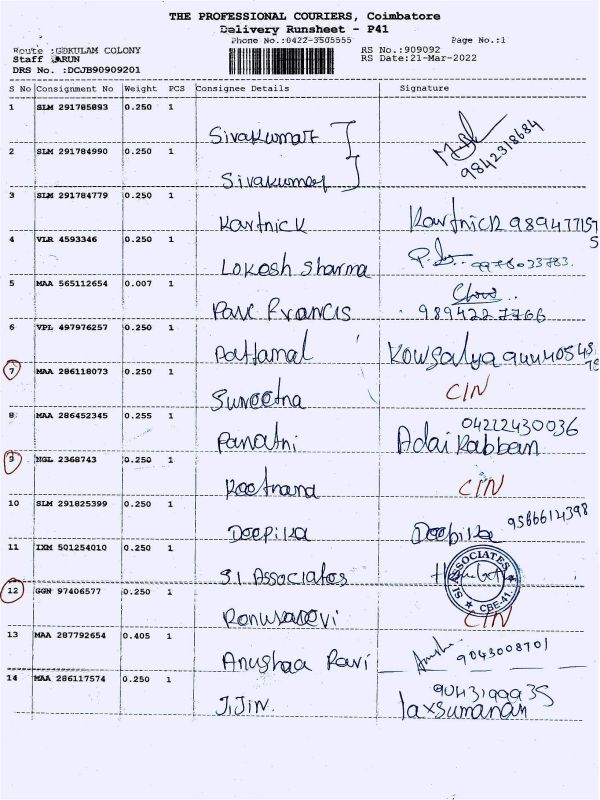 THE PROFESSIONAL COURIERS, Coimbatore
Delivery Runsheet - P41
Phone No.:0422-3505555 Page No.:1
Route :GOKULAM COLONY RS No.:909092
Staff :ARUN RS Date:21-Mar-2022
DRS No. :DCJB90909201
S No Consignment No Weight PCS Consignee Details Signature
1 SLM 291785893 0.250 1
Sivakumar 9842318684
2 SLM 291784990 0.250 1
Sivakumar
3 SLM 291784779 0.250 1
Kartnick Kartnick 9894771575
4 VLR 4593346 0.250 1
Lokesh Sharma
5 MAA 565112654 0.007 1
Francis 9894227766
6 VPL 497976257 0.250 1
Pattamal Kowsalya
7 MAA 286118073 0.250 1
CIN
8 MAA 286452345 0.255 1
04222430036
9 NGL 2368743 0.250 1
CIN
10 SLM 291825399 0.250 1
Deepika Deepika
11 IXM 501254010 0.250 1
S.I. Associates S.I. ASSOCIATES CBE-41.
12 GGN 97406577 0.250 1
CIN
13 MAA 287792654 0.405 1
Anushaa Ravi 9043008701
14 MAA 286117574 0.250 1
9043199935
J.JiN. laxsumanan